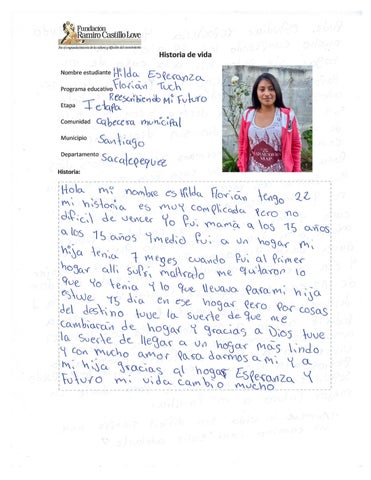 Fundación
Ramiro Castillo Love
Por el engrandecimiento de la cultura y difusión del conocimiento
Historia de vida
Nombre estudiante Hilda Esperanza
Florián Tuch
Programa educativo Reescribiendo Mi Futuro
Etapa I etapa
Comunidad Cabecera municipal
Municipio Santiago
Departamento Sacatepequez
Historia:
Hola mi nombre es Hilda Florián tengo 22
mi historia es muy complicada pero no
dificil de vencer Yo fui mamá a los 15 años
a los 15 años y medio fui a un hogar mi
hija tenia 7 meges cuando fui al Primer
hogar alli sufri maltrato me quitaron lo
que yo tenia y lo que llevava para mi hija
estuve 45 dia en ese hogar pero por cosas
del destino tuve la suerte de que me
cambiarán de hogar y gracias a Dios tuve
la suerte de llegar a un hogar más lindo
y con mucho amor para darnos a mi y a
mi hija gracias al hogar Esperanza Y
Futuro mi vida cambio mucho